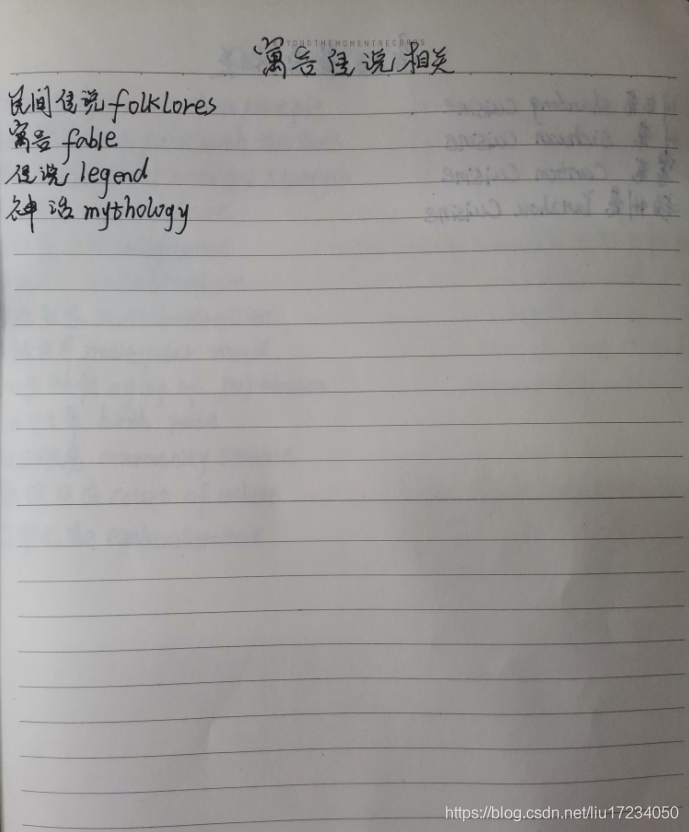 寓言传说相关
民间传说 folklores
寓言 fable
传说 legend
神话 mythology
https://blog.csdn.net/liu17234050